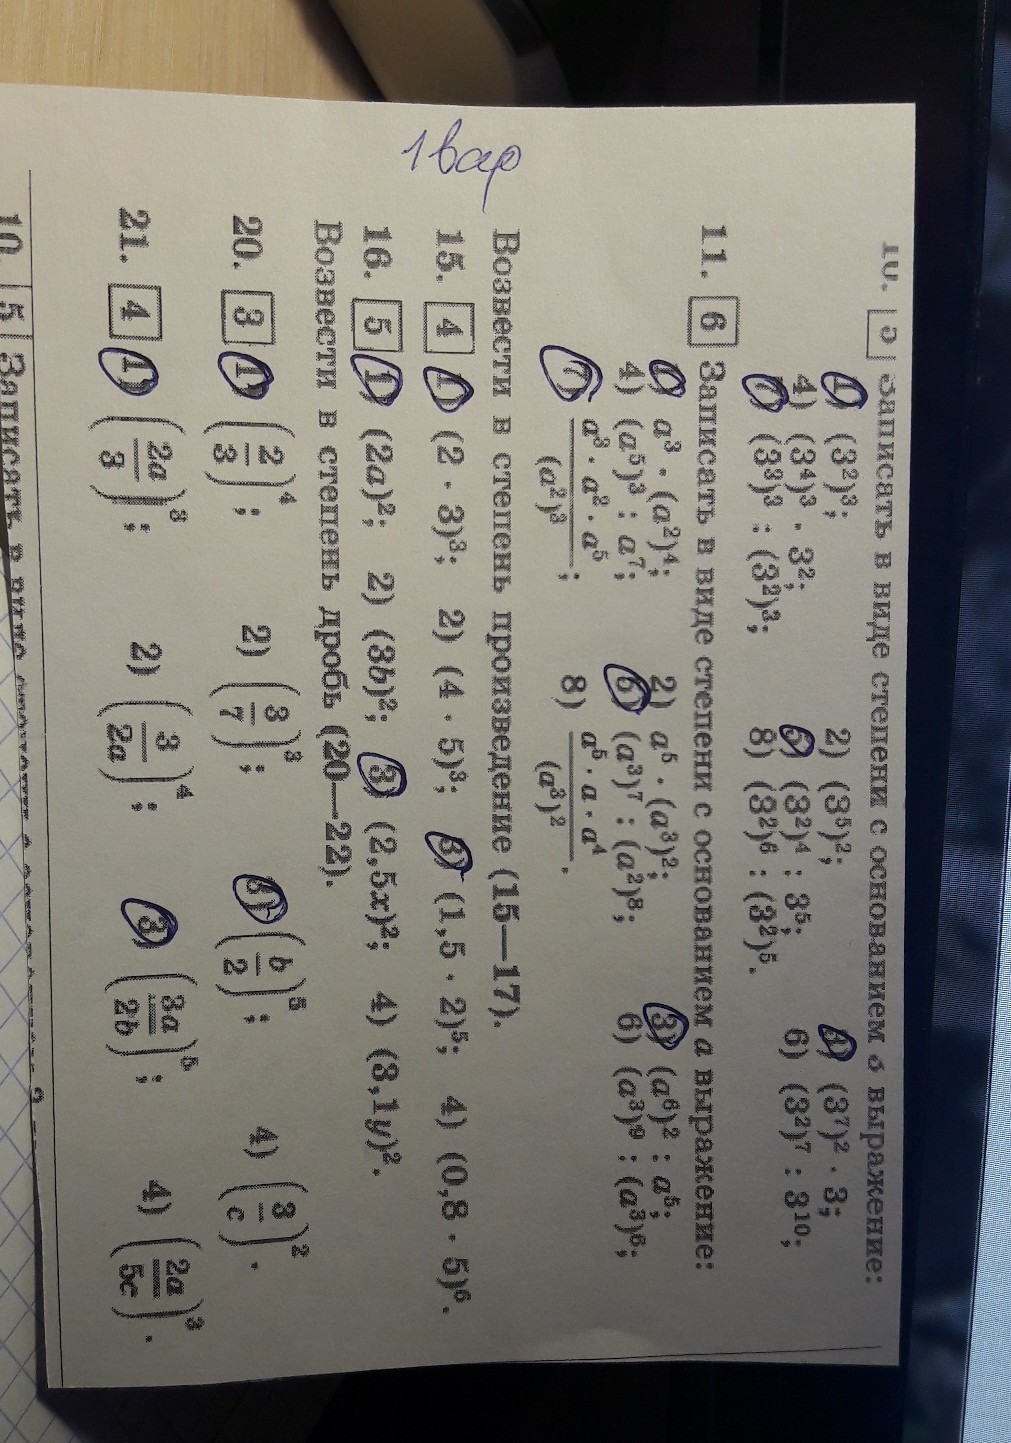 10. 5 Записать в виде степени с основанием 3 выражение:
1) (3²)³; 2) (3⁵)²; 3) (3⁷)² · 3;
4) (3⁴)³ · 3²; 5) (3²)⁴ : 3⁵; 6) (3²)⁷ : 3¹⁰;
7) (3³)³ : (3²)³; 8) (3²)⁶ : (3²)⁵.
11. 6 Записать в виде степени с основанием a выражение:
1) a³ · (a²)⁴; 2) a⁵ · (a³)²; 3) (a⁶)² : a⁵;
4) (a⁵)³ : a⁷; 5) (a³)⁷ : (a²)⁸; 6) (a³)⁹ : (a³)⁶;
7) (a³ · a² · a⁵)/(a²)³; 8) (a⁵ · a · a⁴)/(a³)².
1 вар
Возвести в степень произведение (15—17).
15. 4 1) (2 · 3)³; 2) (4 · 5)³; 3) (1,5 · 2)⁵; 4) (0,8 · 5)⁶.
16. 5 1) (2a)²; 2) (3b)²; 3) (2,5x)²; 4) (3,1y)².
Возвести в степень дробь (20—22).
20. 3 1) (2/3)⁴; 2) (3/7)³; 3) (b/2)⁵; 4) (3/c)².
21. 4 1) (2a/3)³; 2) (3/2a)⁴; 3) (3a/2b)⁵; 4) (2a/5c)³.
10. 5 Записать в виде